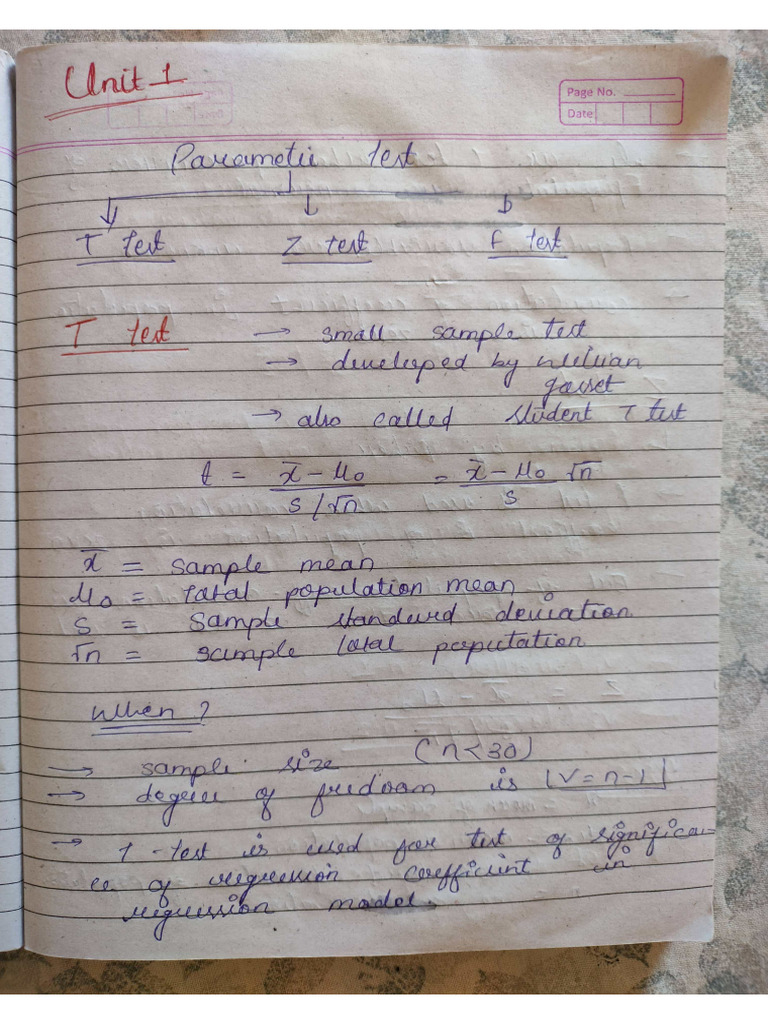 Unit-1
Page No.
Date
Parametic test
T test Z test F test
T test → small sample test
→ developed by William
Gosset
→ also called student T test
t = x̄ - μ₀ / s/√n = x̄ - μ₀ / s √n
x̄ = sample mean
μ₀ = total population mean
s = sample standard deviation
√n = sample total population
When?
→ sample size (n<30)
→ degree of freedom is |V = n-1|
→ t-test is used for test of significan-
ce of regression coefficient in
regression model.